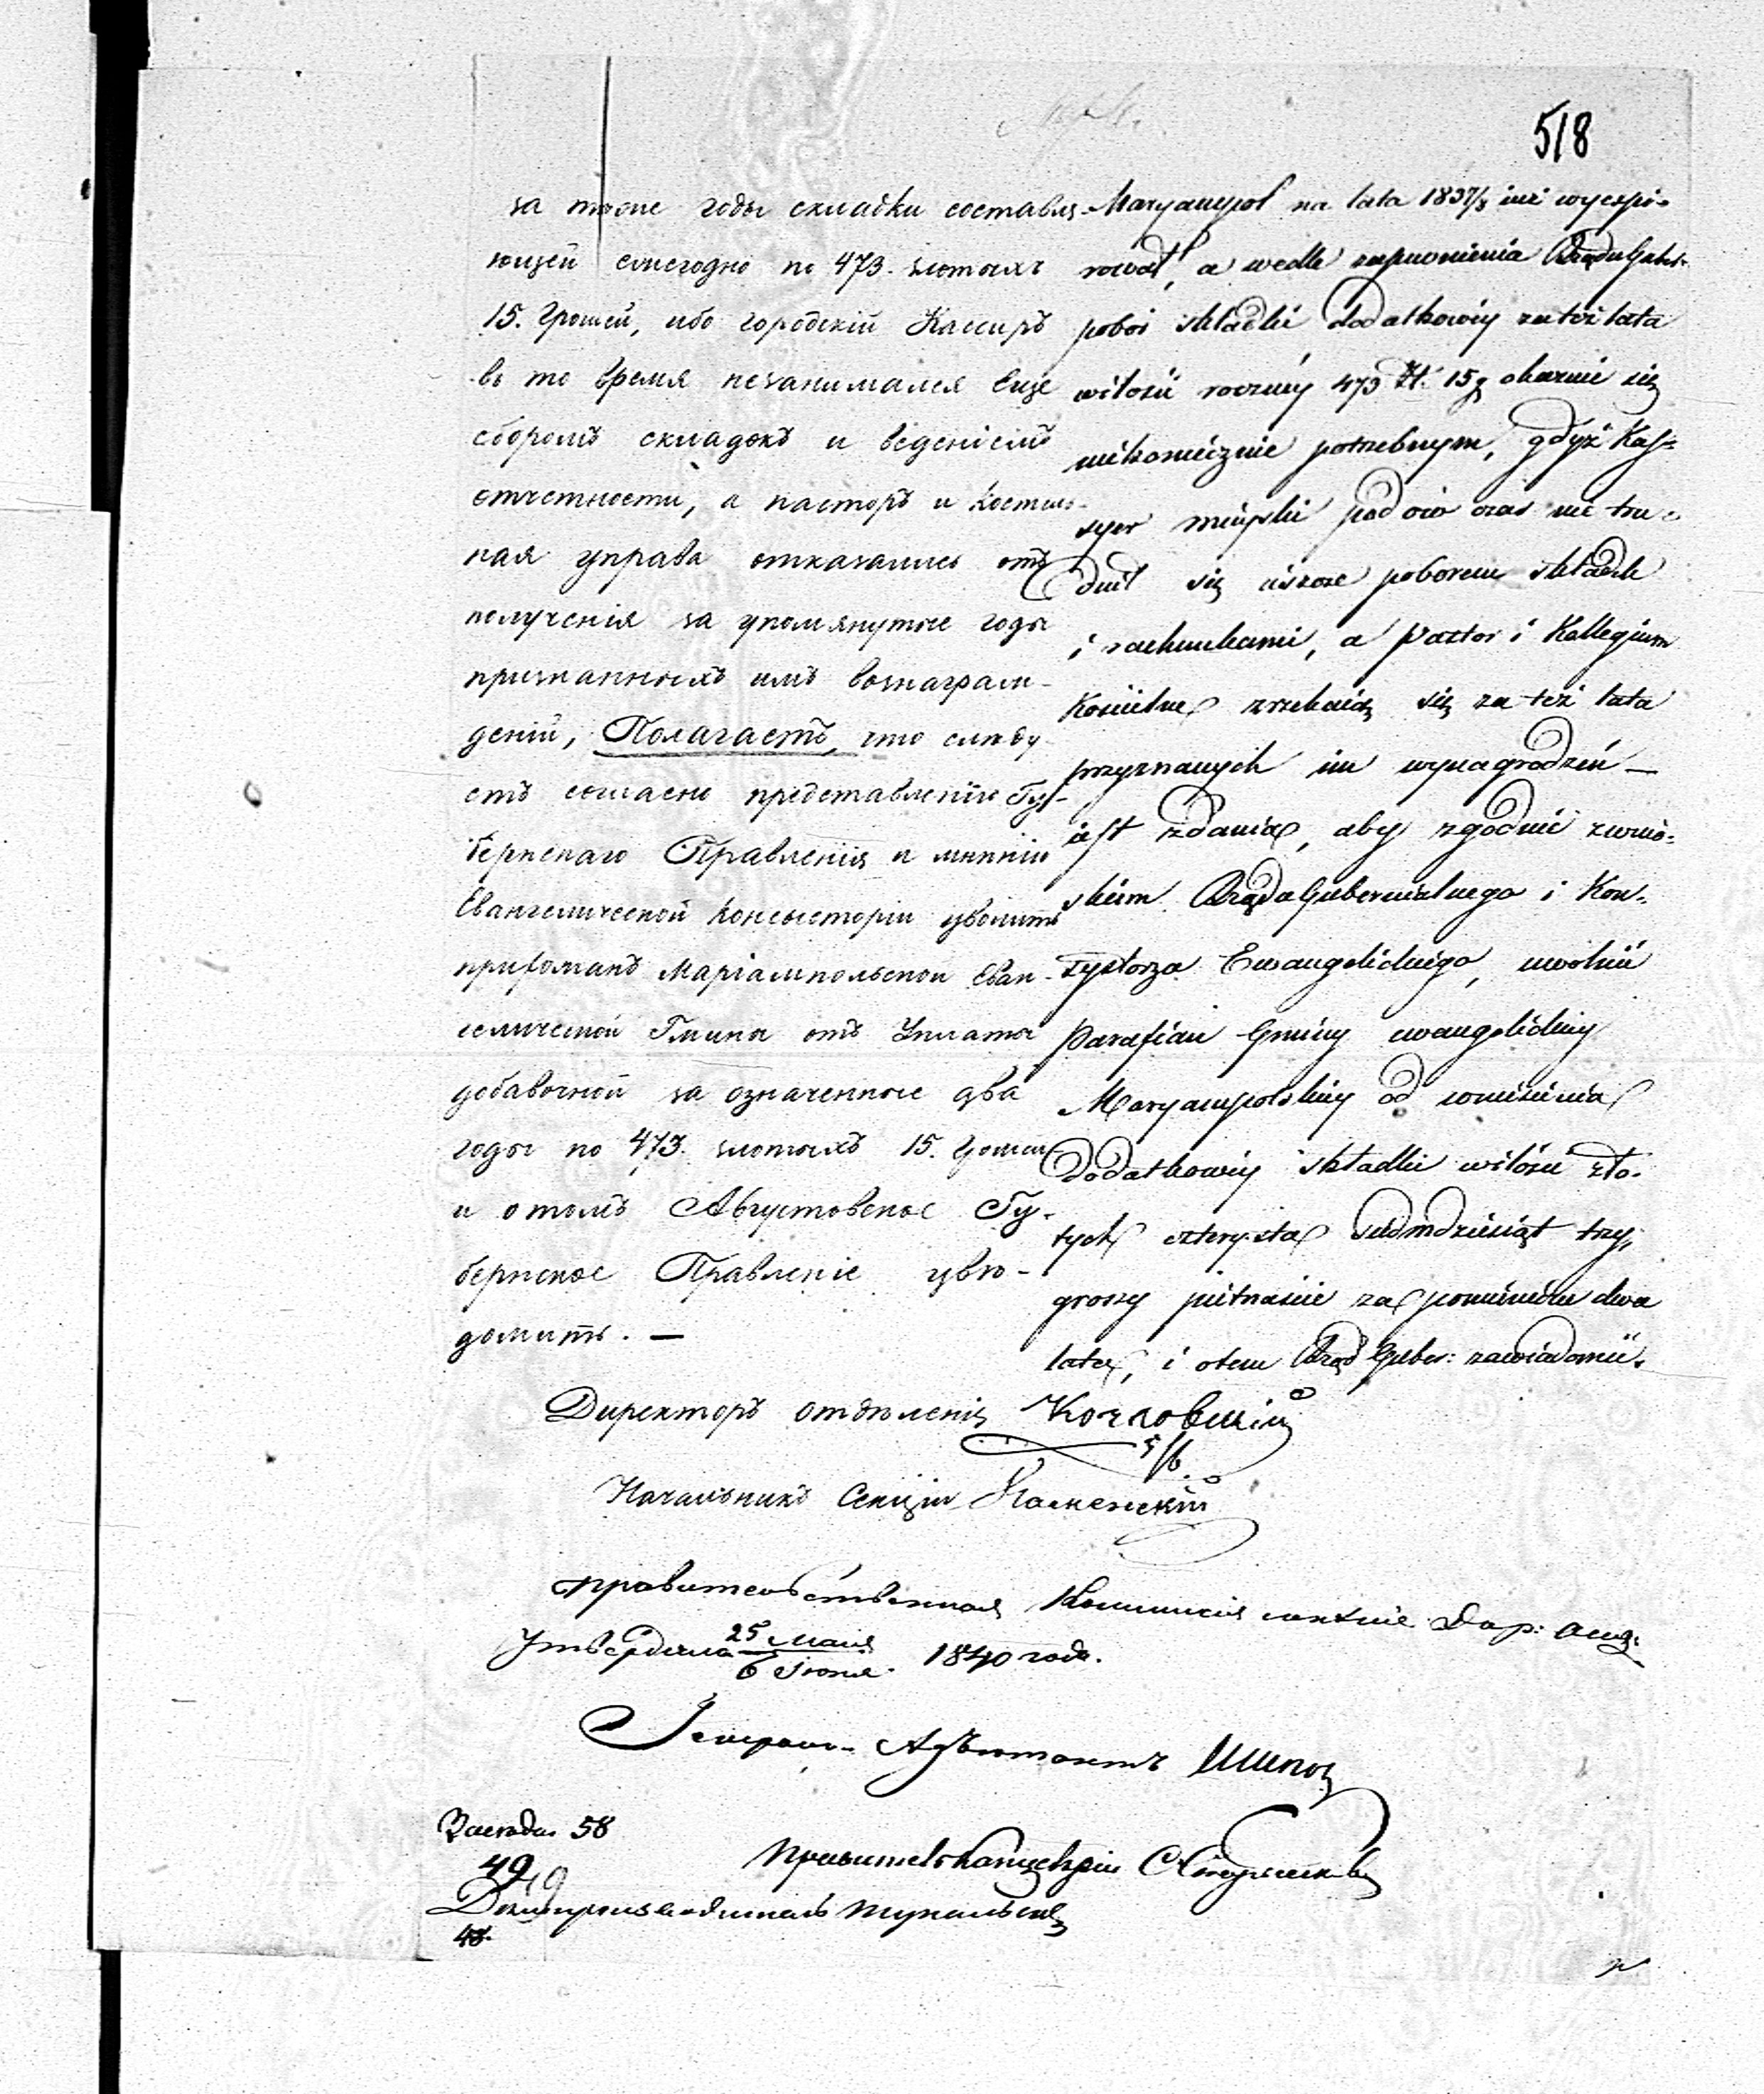 518
за тѣже годы складки составля-
ющей ежегодно по 473. злотыхъ
15. Грошей, ибо городскій Кассиръ
въ то время незанимался еще
сборомъ складокъ и веденіемъ
отчетности, а пасторъ и костель-
ная управа отказались отъ
полученія за упомянутые годы
признанныхъ имъ вознаграж-
деній, Полагаетъ, что слѣду-
етъ согласно представленію Гу-
бернскаго Правленія и мнѣнію
Евангелической Консисторіи уволить
прихожанъ Маріампольской Еван-
гелической Гмины отъ Уплаты
добавочной за означенные два
года по 473. злотыхъ 15. Грошей
и отомъ Августовское Гу-
бернское Правленіе увѣ-
домить. —
Maryampol na lata 1837/8 iuż wyexpi-
rował, a wedle zapewnienia Rządu Gube:
pobór składki dodatkowéy za też lata
w ilości roczney 473 Zł. 15 g okazuie się
niekoniecznie potrzebnym, gdyż Kas-
syer mieyski pod ów czas nie tru-
dnił się ieszcze poborem składek
i rachunkami, a Pastor i Kollegium
Kościelne zrzekaią się za też lata
przyznanych im wynagrodzeń —
iest zdania, aby zgodnie z wnio-
skiem Rządu Gubernialnego i Kon-
systorza Ewangelickiego, uwolnić
Parafian Gminy ewangelickiey
Maryampolskiey od wniesienia
dodatkowéy składki w ilości zło-
tych czterysta siedmdziesiąt trzy,
groszy piętnaście za pomienione dwa
lata, i o tem Rząd Guber: zawiadomić.
Директоръ отдѣленія Козловскій
5/6.
Начальникъ Секціи Каменскій
Правительственная Коммисія мнѣніе Дир:
Утвердила 25 Мая / 6 Іюня 1840 года.
Генералъ-Адъютантъ Шипов
Засѣда. 58
49
Правитель Канцеляріи
Дѣлопроизводитель
48.